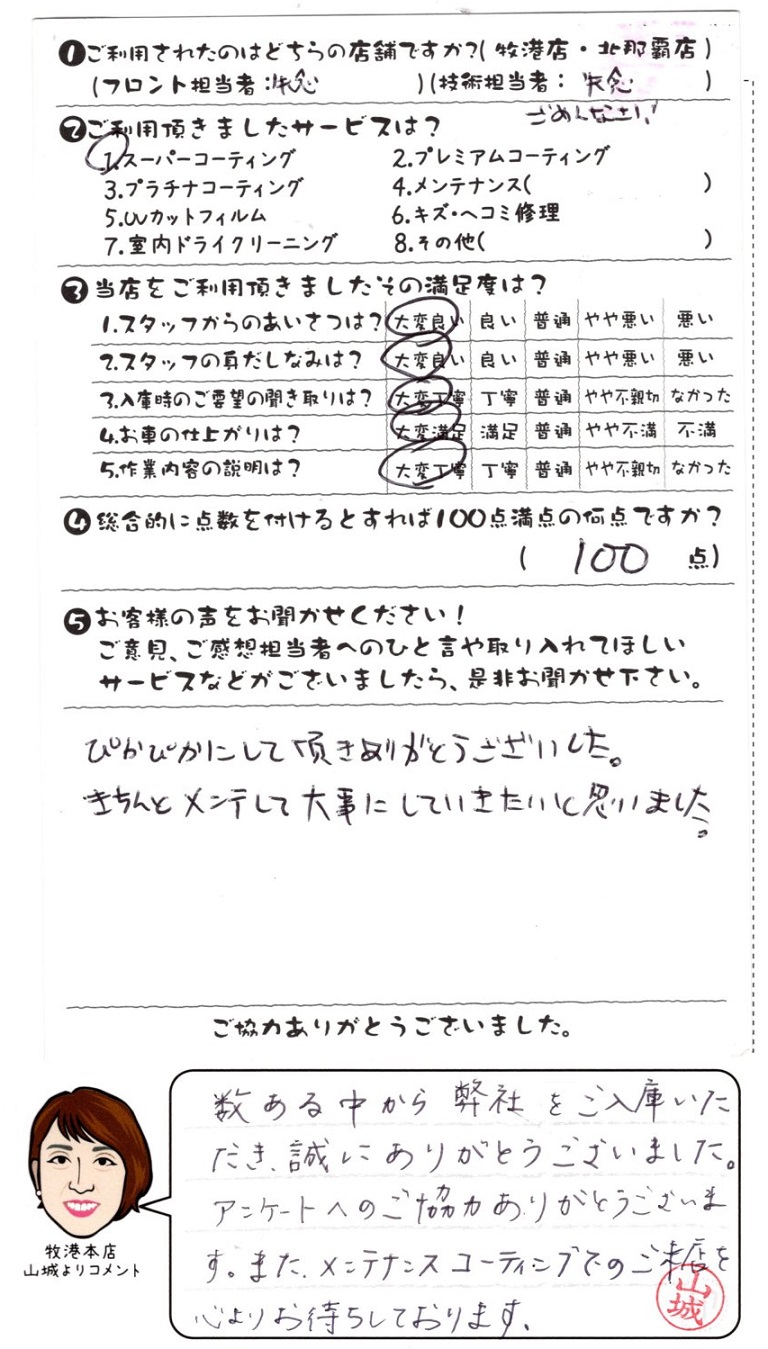 ❶ご利用されたのはどちらの店舗ですか?(牧港店・北那覇店)
(フロント担当者:失念)(技術担当者:失念)
ごめんなさい!
❷ご利用頂きましたサービスは?
1.スーパーコーティング 2.プレミアムコーティング
3.プラチナコーティング 4.メンテナンス( )
5.UVカットフィルム 6.キズ・ヘコミ修理
7.室内ドライクリーニング 8.その他( )
❸当店をご利用頂きましたその満足度は?
1.スタッフからのあいさつは? 大変良い 良い 普通 やや悪い 悪い
2.スタッフの身だしなみは? 大変良い 良い 普通 やや悪い 悪い
3.入庫時のご要望の聞き取りは? 大変丁寧 丁寧 普通 やや不親切 なかった
4.お車の仕上がりは? 大変満足 満足 普通 やや不満 不満
5.作業内容の説明は? 大変丁寧 丁寧 普通 やや不親切 なかった
❹総合的に点数を付けるとすれば100点満点の何点ですか?
( 100 点)
❺お客様の声をお聞かせください!
ご意見、ご感想担当者へのひと言や取り入れてほしい
サービスなどがございましたら、是非お聞かせ下さい。
ぴかぴかにして頂きありがとうございした。
きちんとメンテして大事にしていきたいと思いました。
ご協力ありがとうございました。
数ある中から弊社をご入庫いた
だき、誠にありがとうございました。
アンケートへのご協力ありがとうございま
す。また、メンテナンスコーティングでのご来店を
心よりお待ちしております。
山城
牧港本店
山城よりコメント